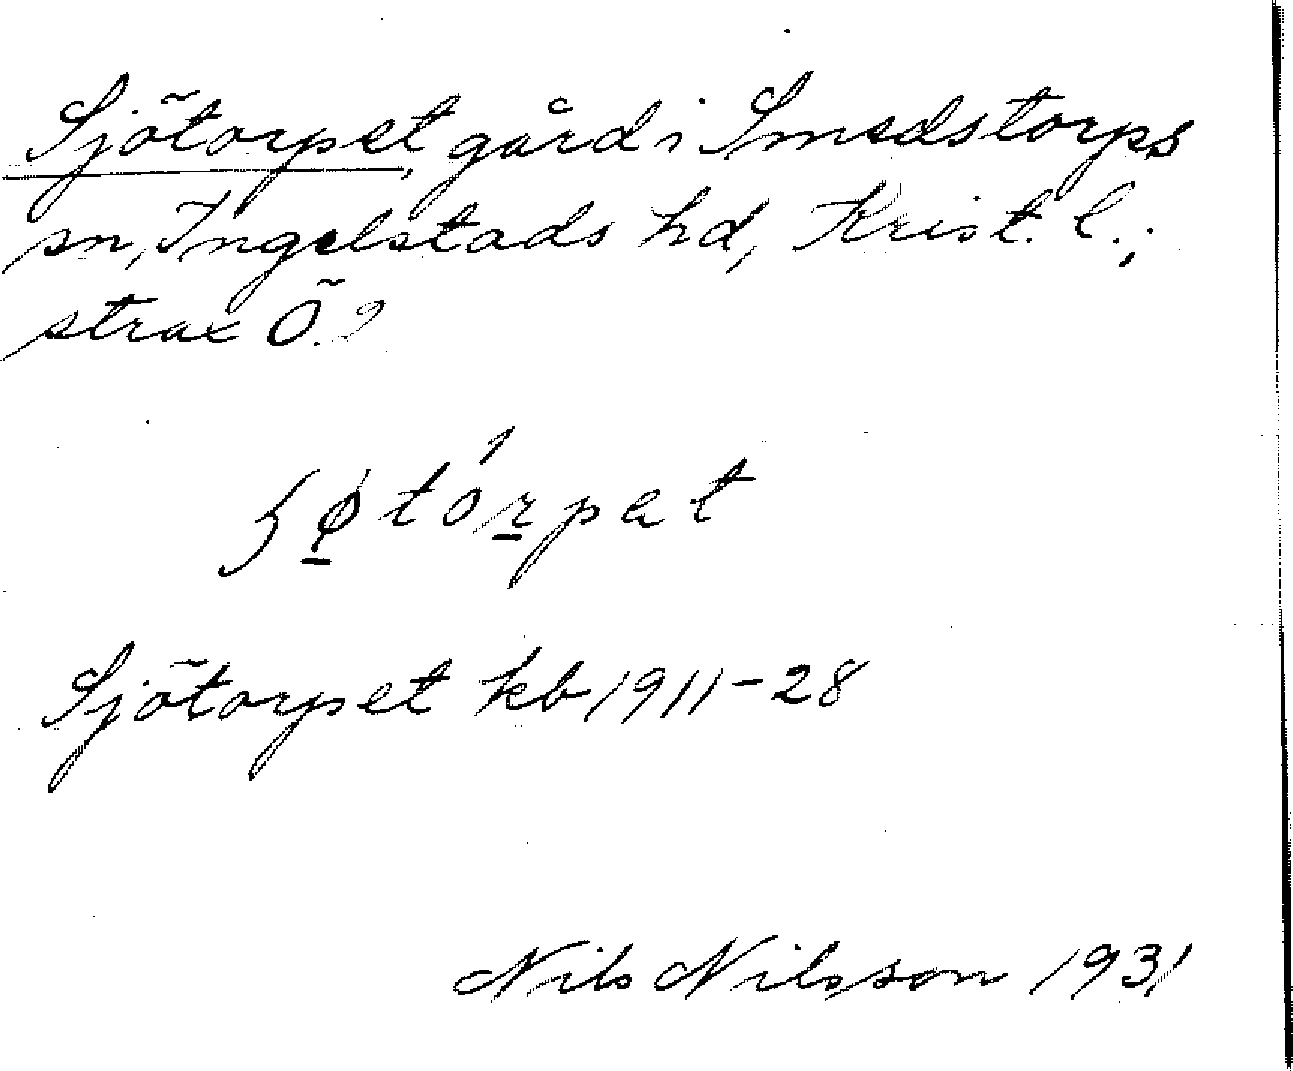 Sjötorpet, gård i Smedstorps
sn, Ingelstads hd, Krist. l.;
strax Ö. ?
ʃø̱tóṟpet
Sjötorpet kb 1911-28
Nils Nilsson 1931